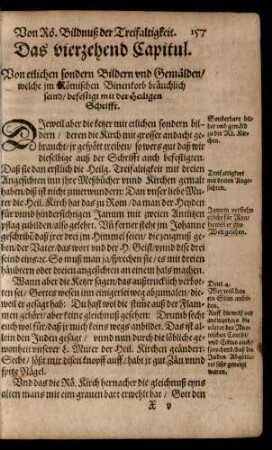 Von Rö. Bildnuß der Treifaltigkeit. 157
Das vierzehend Capitul.
Von etlichen sondern Bildern vnd Gemälden/
welche im Römischen Binenkorb bräuchlich
seind/ befestigt mit der Heiligen
Schrifft.
DJeweil aber die ketzer mit etlichen sondern bil-
dern / deren die Kirch mit grosser andacht ge-
braucht/ jr gespött treiben/ so wers gut daß wir
dieselbige auß der Schrifft auch befestigten.
Daß sie dan erstlich die Heilig. Treifaltigkeit mit dreien
Angesichten inn jhre Meßbücher vnnd Kirchen gemalt
haben/ daß ist nit zuuerwundern: Dan vnser liebe Mut-
ter die Heil. Kirch hat das zu Rom/ da man der Heyden
für vnnd hindersichtigen Janum mit zweien Antlitzen
pflag zubilden/ also gelehrt.
ban der Vater/ das wort vnd der H. Geist/ vnd dise drei
seind eins etc. So muß man ja sprechen sie/ es mit dreien
häubtern oder dreien angesichten an einem hals machen.
Wann aber die Ketzer sagen/ das austrucklich verbot-
ten sei/ Gottes wesen inn einigerlei weg abzumalen/ die-
weil er gesagt hab: Du hast wol die stimm auß der Flam-
men gehört/ aber keine gleichnuß gesehen: Drumb seht
euch wol für/ daß jr mich keins wegs anbildet. Das ist al-
lein den Juden gesagt / vnnd nun durch die löbliche ge-
wonheit vnserer L. Muter der Heil. Kirchen geändert:
Secht/ löst mir disen knopff auff/ habt jr gut Zän vnnd
spitze Nägel.
Vnd das die Rö. Kirch hernacher die gleichnuß eyns
alten mans mit eim grauen bart erwehlt hat / Gott den
X v
Sonderbare bil-
der vnd gemäld
in der Rö. Kir-
chen.
Treifaltigkeit
mit dreien Ange-
sichten.
Deut. 4.